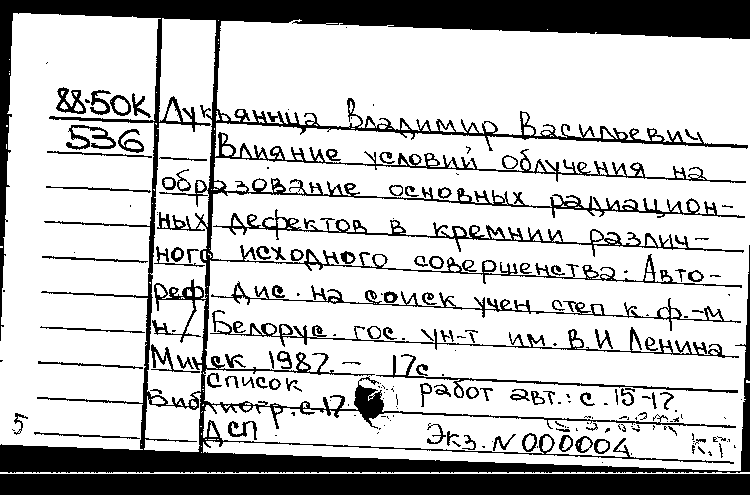 88-50К Лукьяница, Владимир Васильевич
536 Влияние условий облучения на
образование основных радиацион-
ных дефектов в кремнии различ-
ного исходного совершенства: Авто-
реф. дис. на соиск учен. степ к. ф.-м
н. / Белорус. гос. ун-т им. В.И Ленина
Минск, 1987. - 17с.
список работ авт.: с. 15-17
Библиогр. с. 17
5 ДСП Экз. N 000004 К.Т